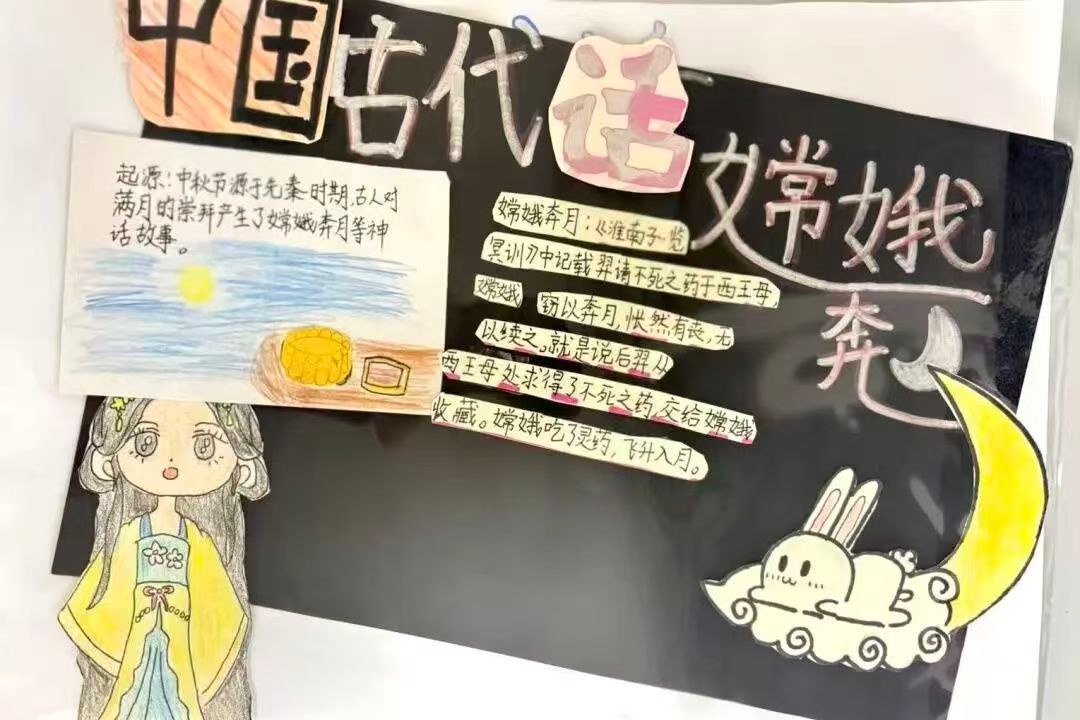 中国古代话
嫦娥
奔
起源：中秋节源于先秦时期，古人对
满月的崇拜产生了嫦娥奔月等神
话故事。
嫦娥奔月：《淮南子·览
冥训》中记载羿请不死之药于西王母，
嫦娥 窃以奔月，怅然有丧，无
以续之。就是说后羿从
西王母处求得了不死之药，交给嫦娥
收藏。嫦娥吃了灵药，飞升入月。